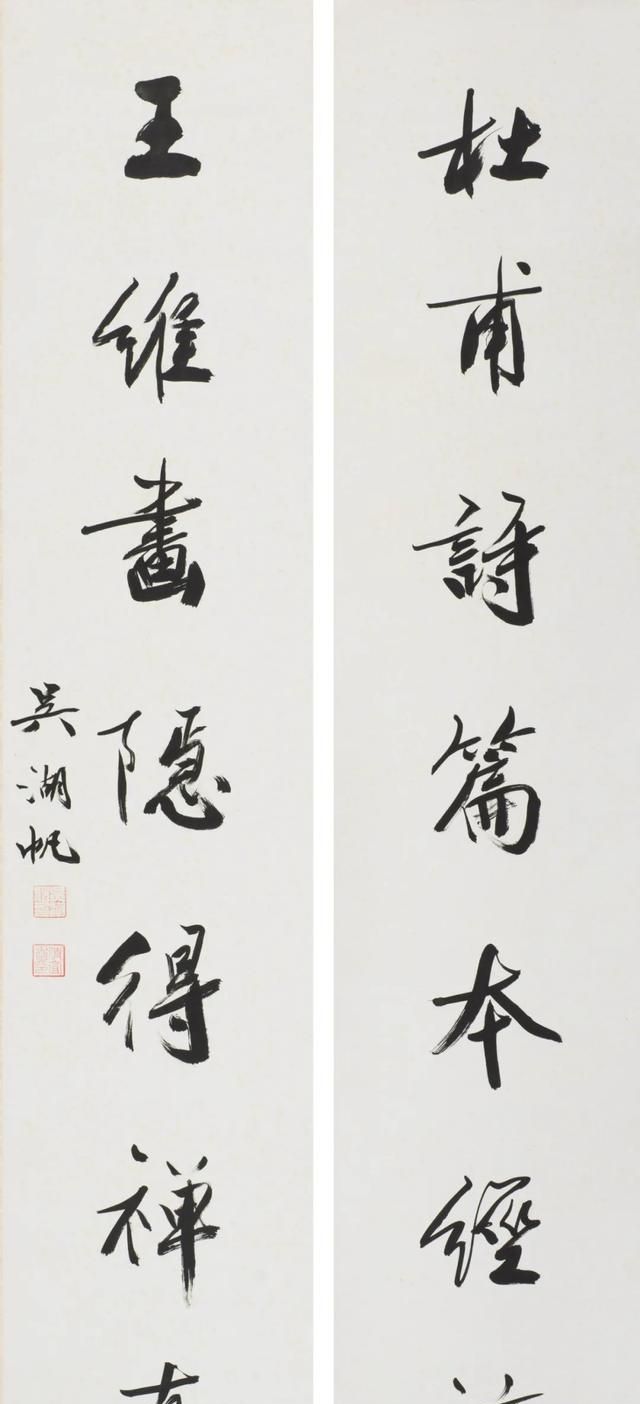 杜甫詩篇本經
王維畫隱得禪
吳湖帆